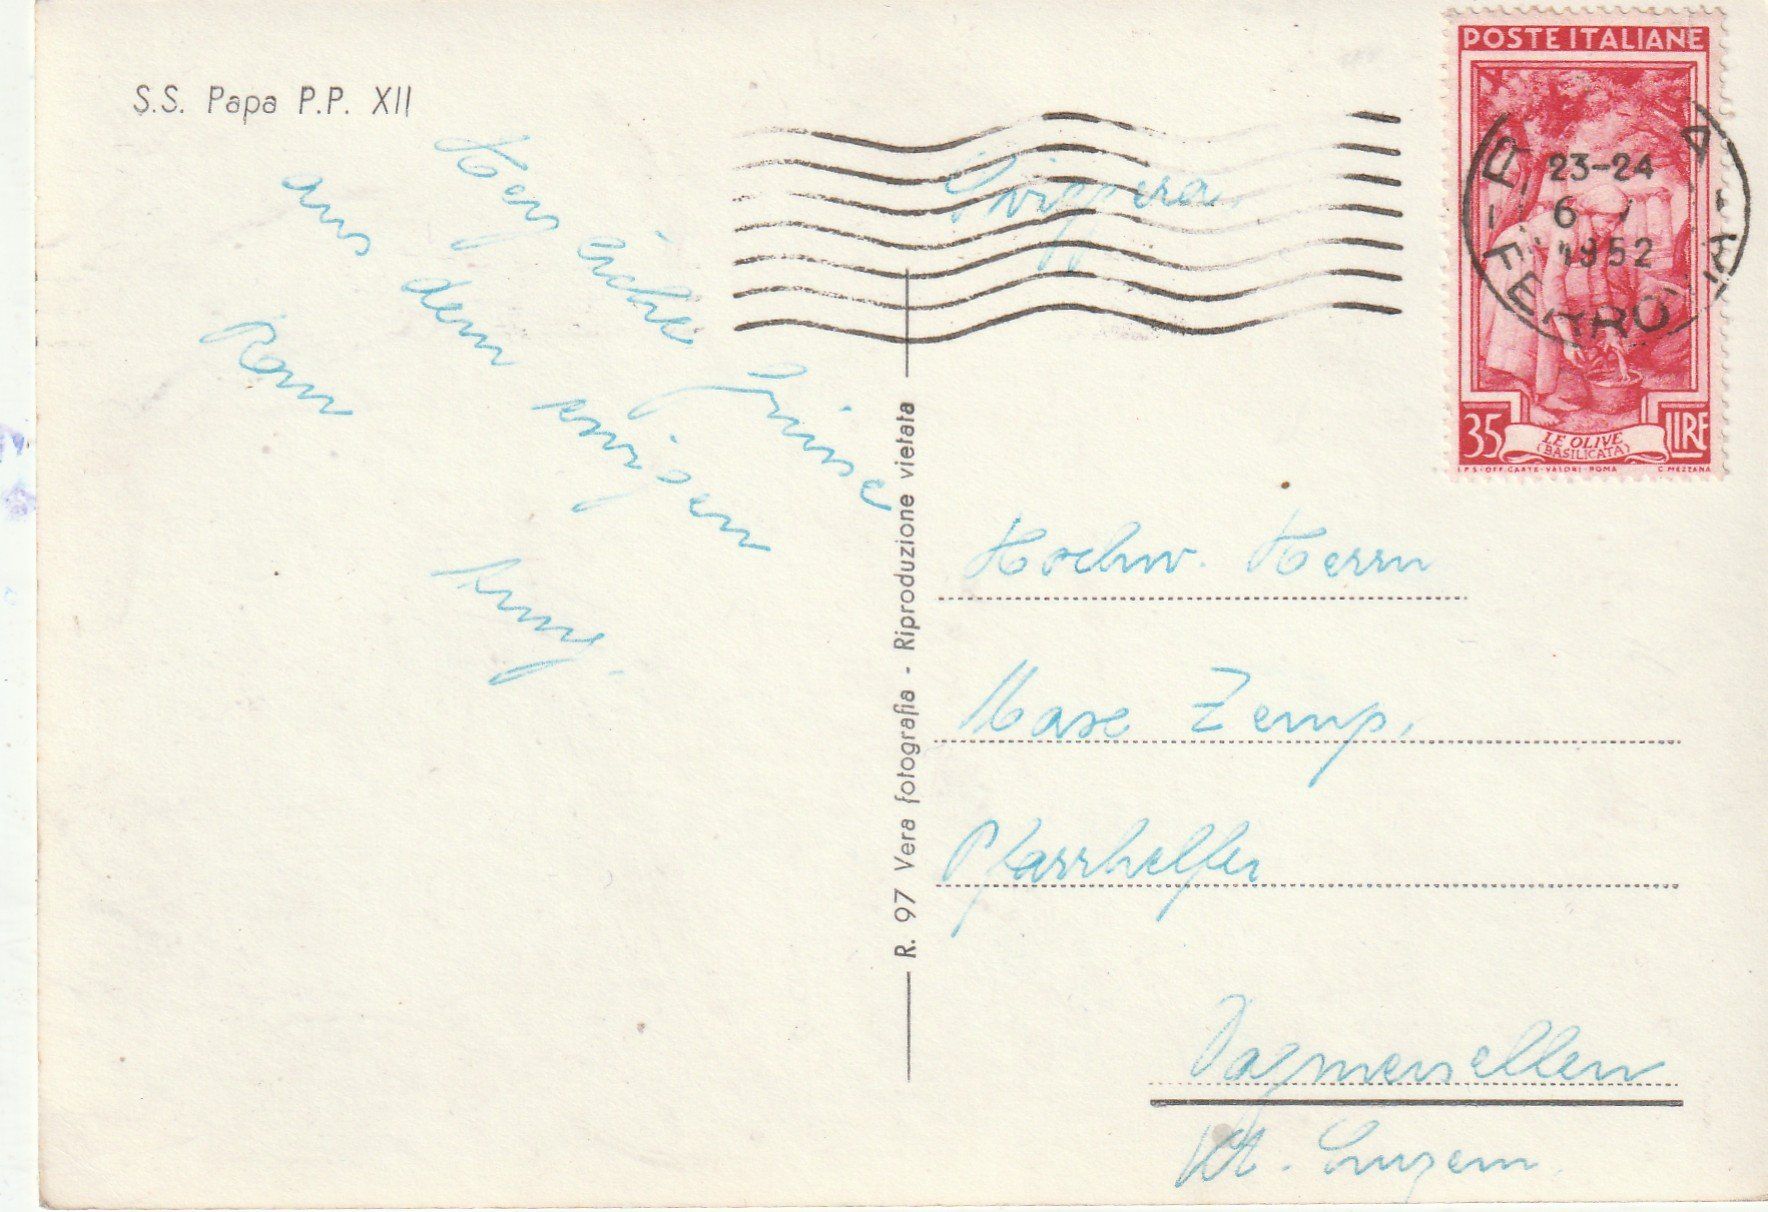 S.S. Papa P.P. XII
Herzliche Grüsse
aus dem ewigen
Rom
Svizzera.
POSTE ITALIANE
35 LIRE
LE OLIVE
(BASILICATA)
I.P.S.-OFF. CARTE-VALORI-ROMA C. MEZZANA
23-24
6
1952
FERROVIA
R. 97 Vera fotografia - Riproduzione vietata
Hochw. Herrn
Max Zemp,
Pfarrhelfer
Dagmersellen
Kt. Luzern.